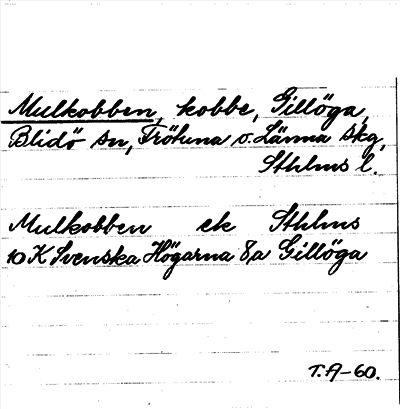 Mulkobben, kobbe, Gillöga,
Blidö sn, Frötuna o. Länna skg,
Sthlms l.
Mulkobben ek Sthlms
10 K Svenska Högarna 8,a Gillöga
T.A-60.